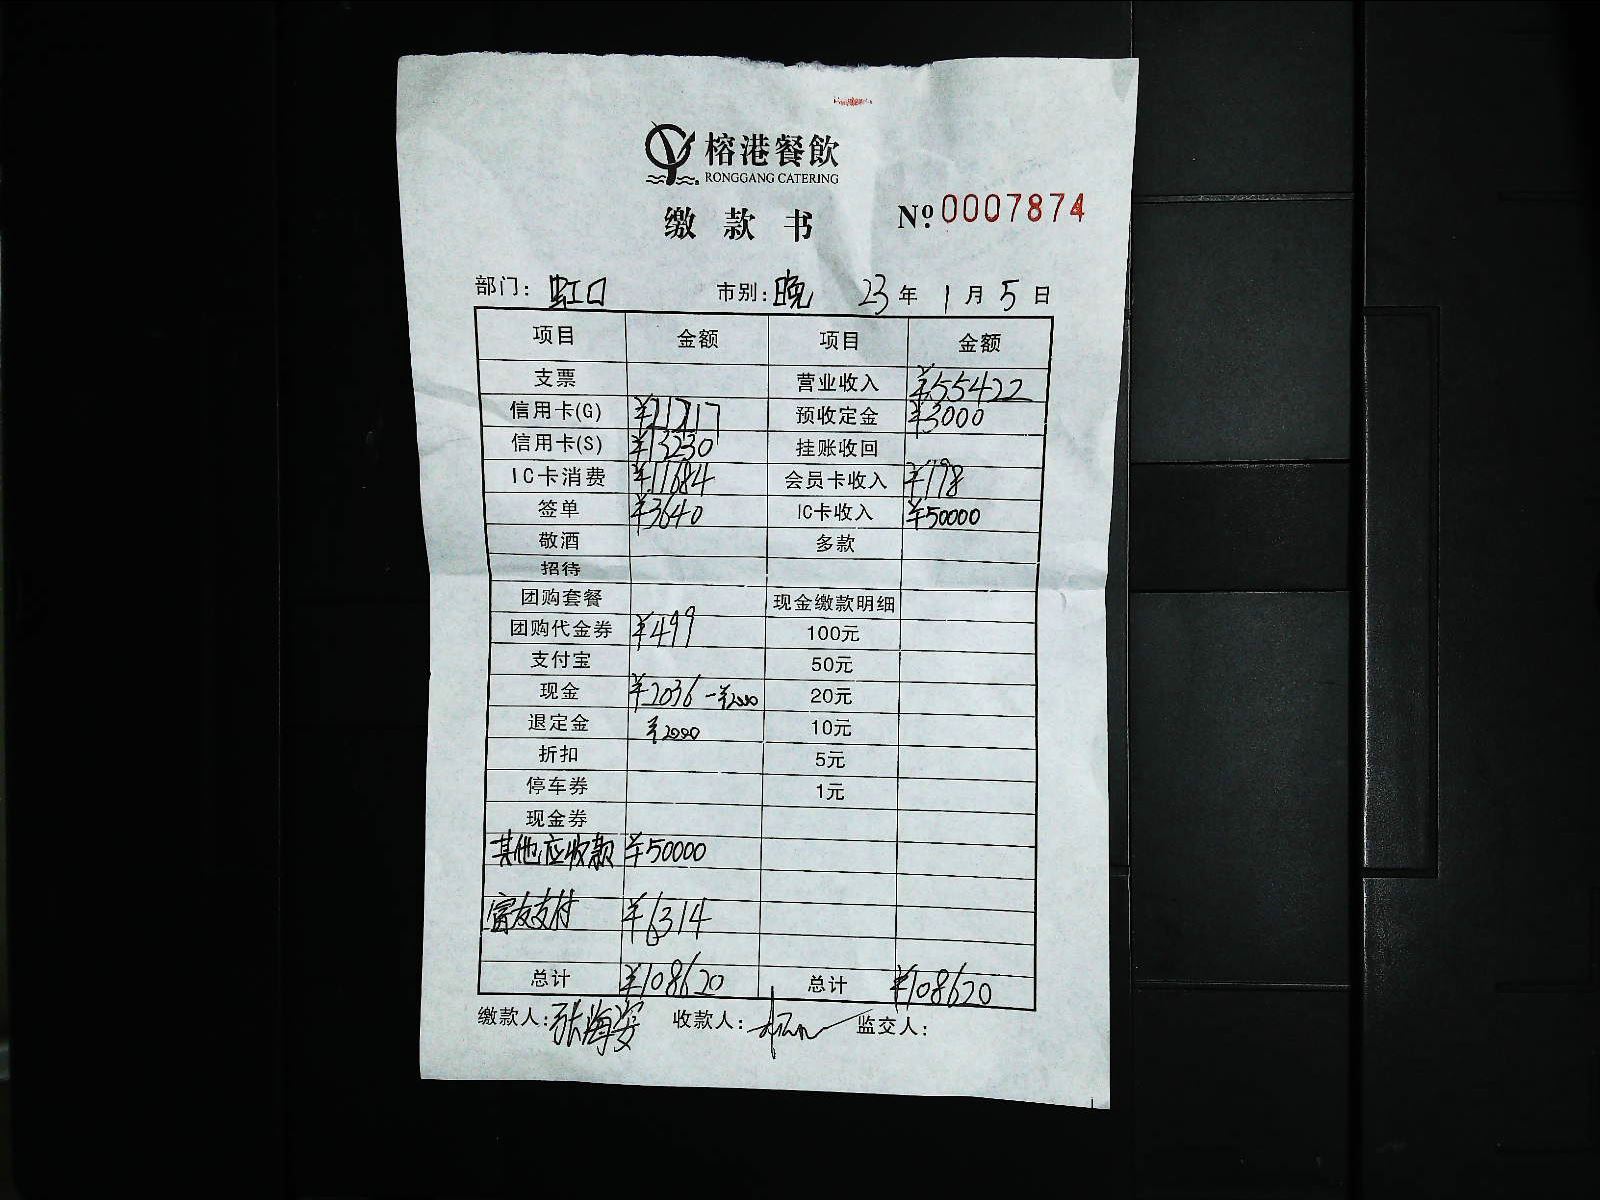 榕港餐飲
RONGGANG CATERING
缴款书 №0007874
部门: 虹口 市别: 晚 23年 1月 5日
项目 金额 项目 金额
支票 营业收入 ¥55422
信用卡(G) ¥21217 预收定金 ¥3000
信用卡(S) ¥13230 挂账收回
IC卡消费 ¥11684 会员卡收入 ¥198
签单 ¥3640 IC卡收入 ¥50000
敬酒 多款
招待
团购套餐 现金缴款明细
团购代金券 ¥499 100元
支付宝 50元
现金 ¥2036 -¥2000 20元
退定金 ¥2000 10元
折扣 5元
停车券 1元
现金券
其他应收款 ¥50000
富友支付 ¥6314
总计 ¥108620 总计 ¥108620
缴款人: 张海 收款人: 监交人: